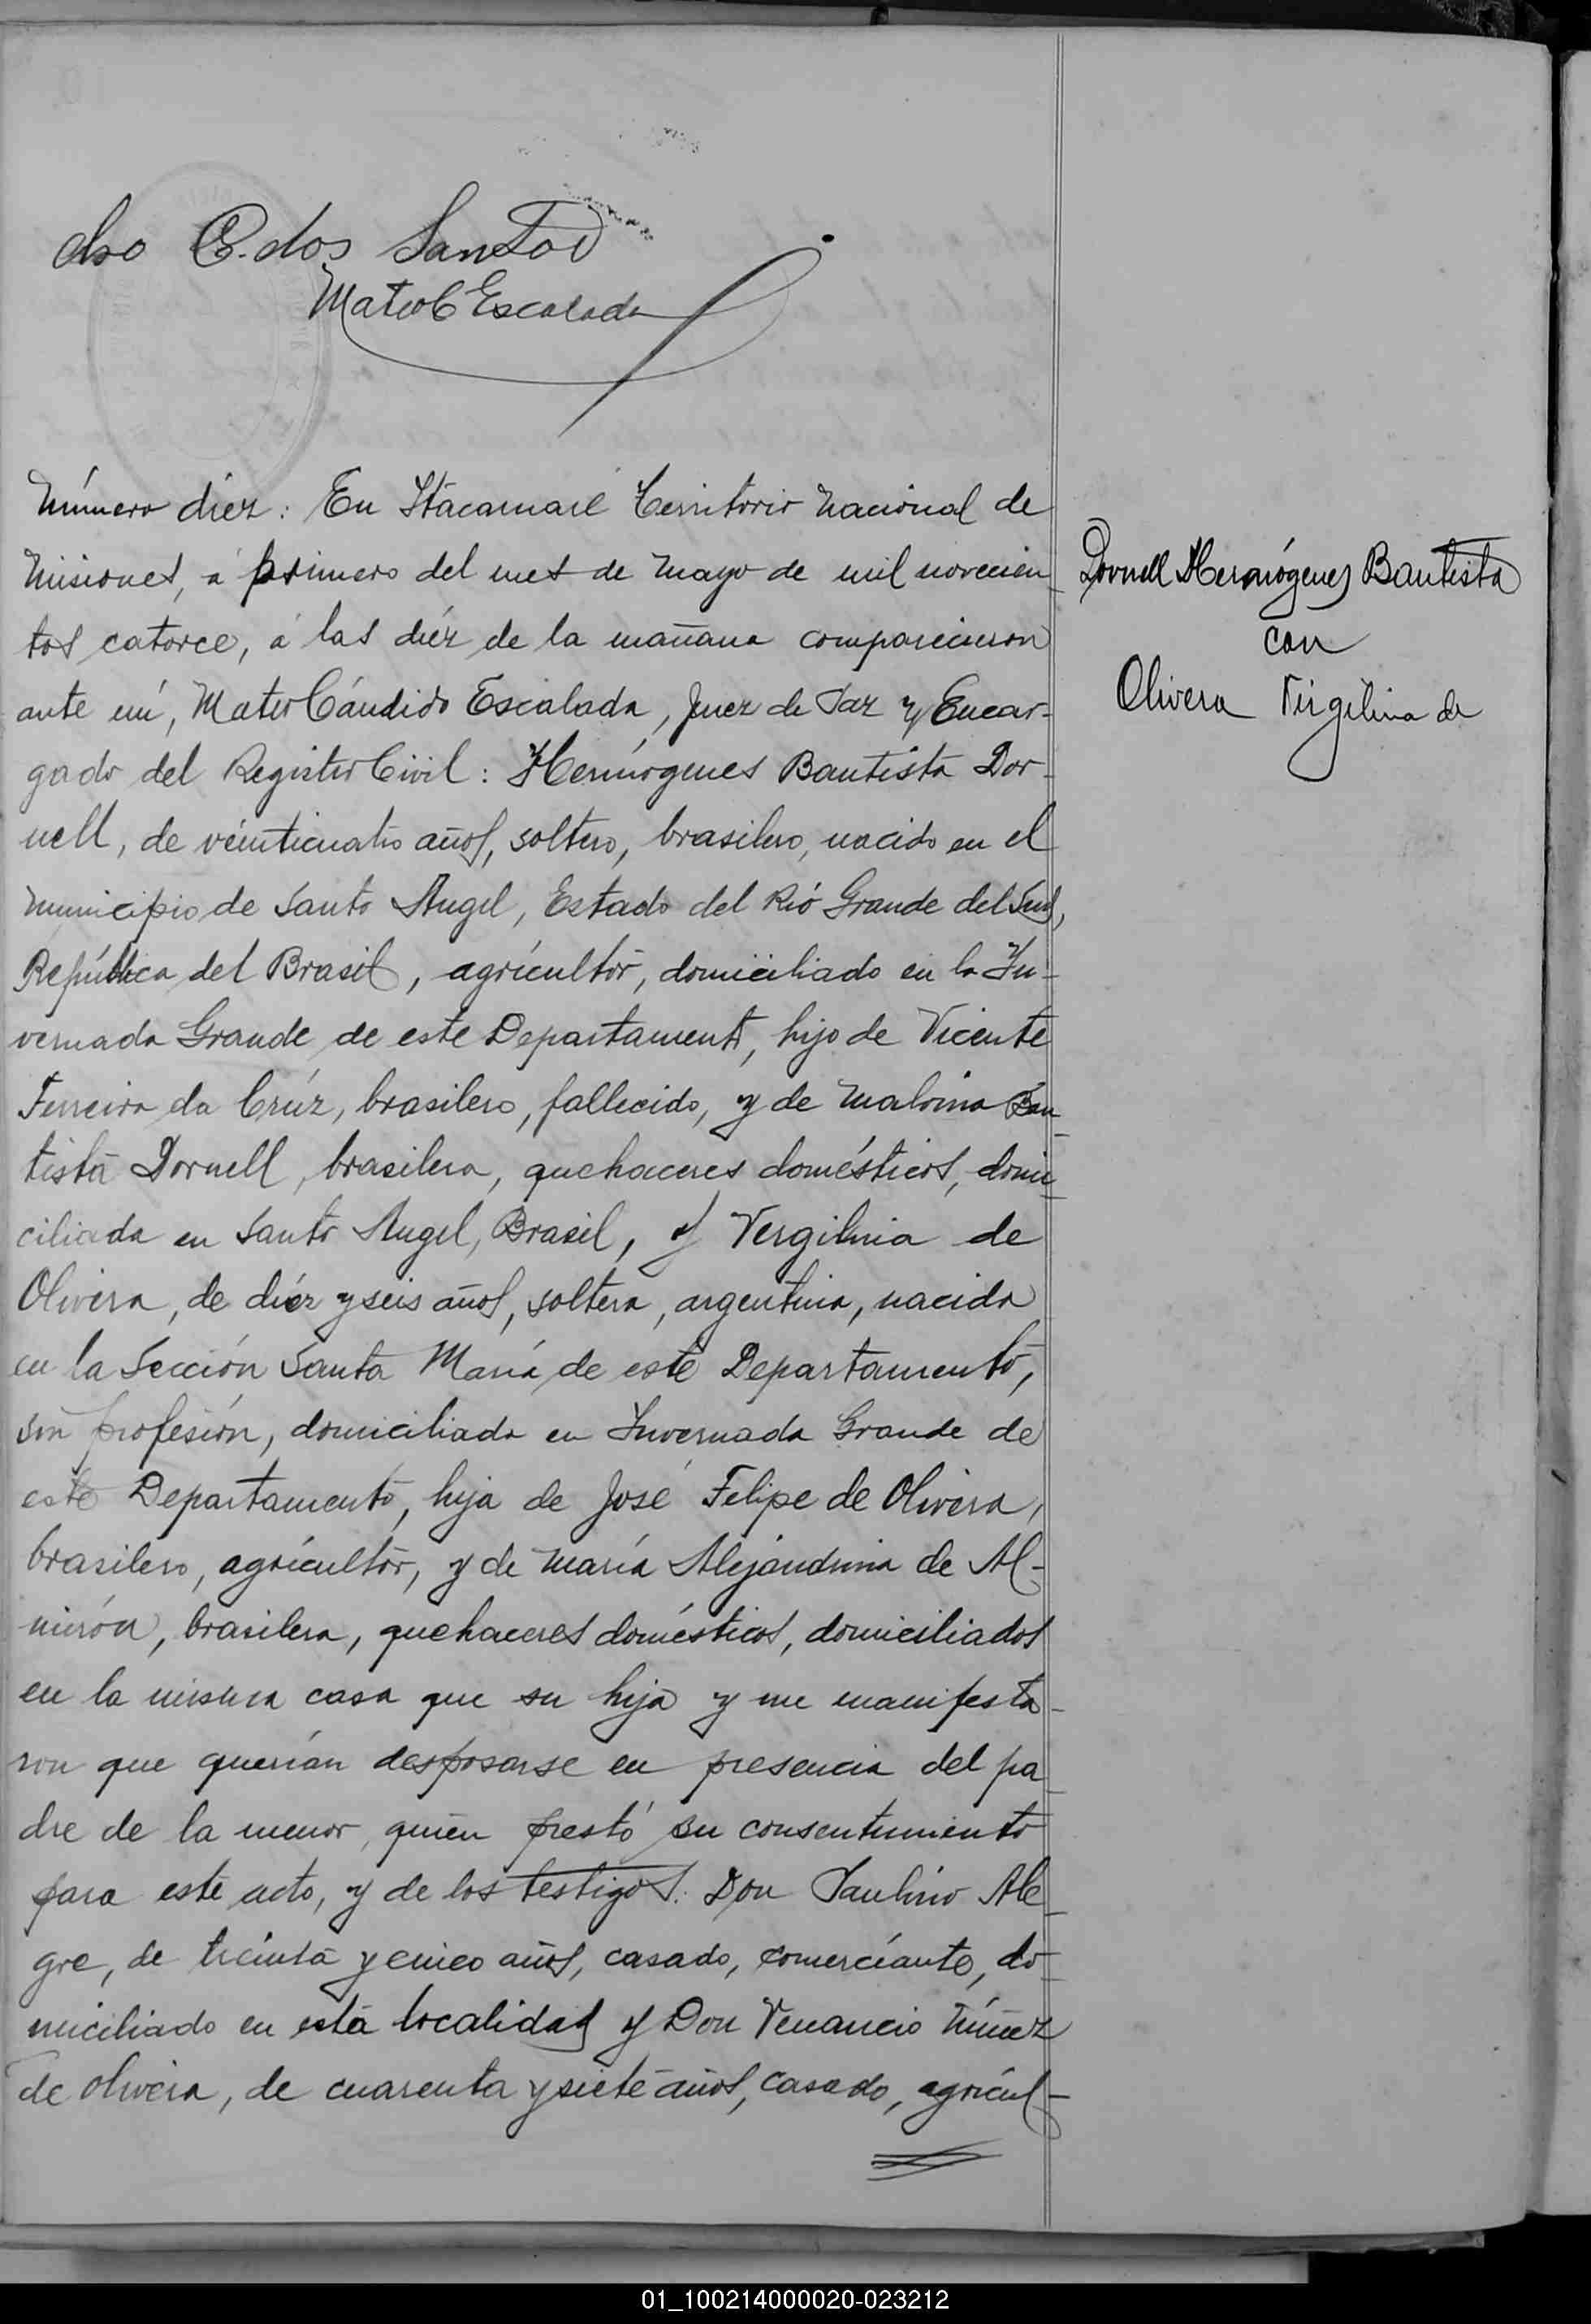 C. dos Santos
Mateo C Escalada
Número diez: En Itacaruaré Territorio Nacional de
Misiones, á primero del mes de Mayo de mil novecien
tos catorce, á las diéz de la mañana comparecieron
ante mí, Mateo Cándido Escalada, Juez de Paz y Encar-
gado del Registro Civil: Hermógenes Bautista Dor-
nell, de veinticuatro años, soltero, brasilero, nacido en el
Municipio de Santo Angel, Estado del Río Grande del Sud,
República del Brasil, agricultor, domiciliado en la In-
vernada Grande de este Departamento, hijo de Vicente
Ferreira da Crúz, brasilero, fallecido, y de Malvina Bau
tista Dornell, brasilera, quehaceres domésticos, domi
ciliada en Santo Angel, Brasil, y Vergilinia de
Olivera, de diéz y seis años, soltera, argentina, nacida
en la Sección Santa María de este Departamento,
sin profesión, domiciliada en Invernada Grande de
este Departamento, hija de José Felipe de Olivera,
brasilero, agricultor, y de María Alejandrina de Al-
mirón, brasilera, quehaceres domésticos, domiciliados
en la misma casa que su hija y me manifesta-
ron que querían desposarse en presencia del pa
dre de la menor, quien prestó su consentimiento
para este acto, y de los testigos: Don Paulino Ale
gre, de treinta y cinco años, casado, comerciante, do
miciliado en esta localidad y Don Venancio Núñez
de Olivera, de cuarenta y siete años, casado, agricul-
Dornell Hermógenes Bautista
con
Olivera Virgilina de
01_100214000020-023212